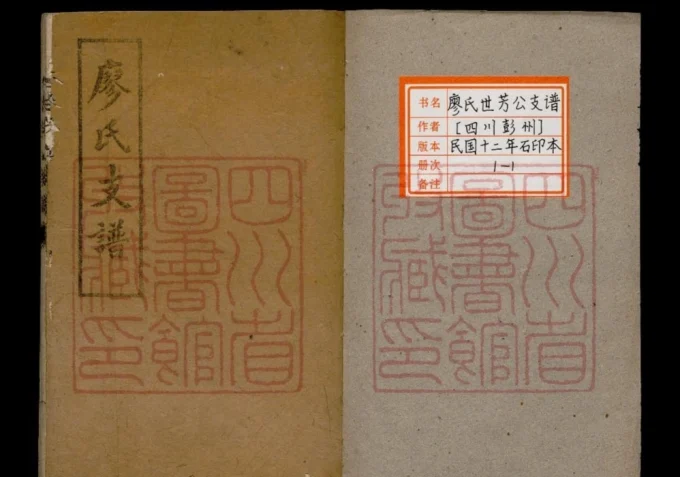 廖氏支譜
四川省
圖書館
收藏印
书名 廖氏世芳公支谱
作者 [四川彭州]
版本 民国十二年石印本
册次 1-1
备注
四川省
圖書館
收藏印